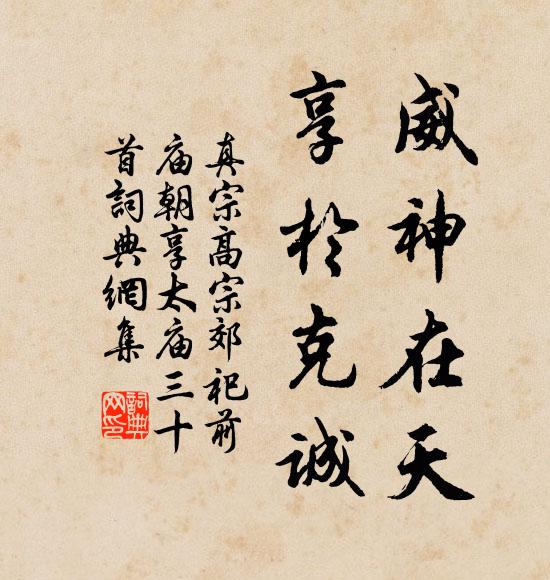 威神在天
享於克誠
真宗高宗郊祀前
庙朝享太庙三十
首詞典網集
詞典网印